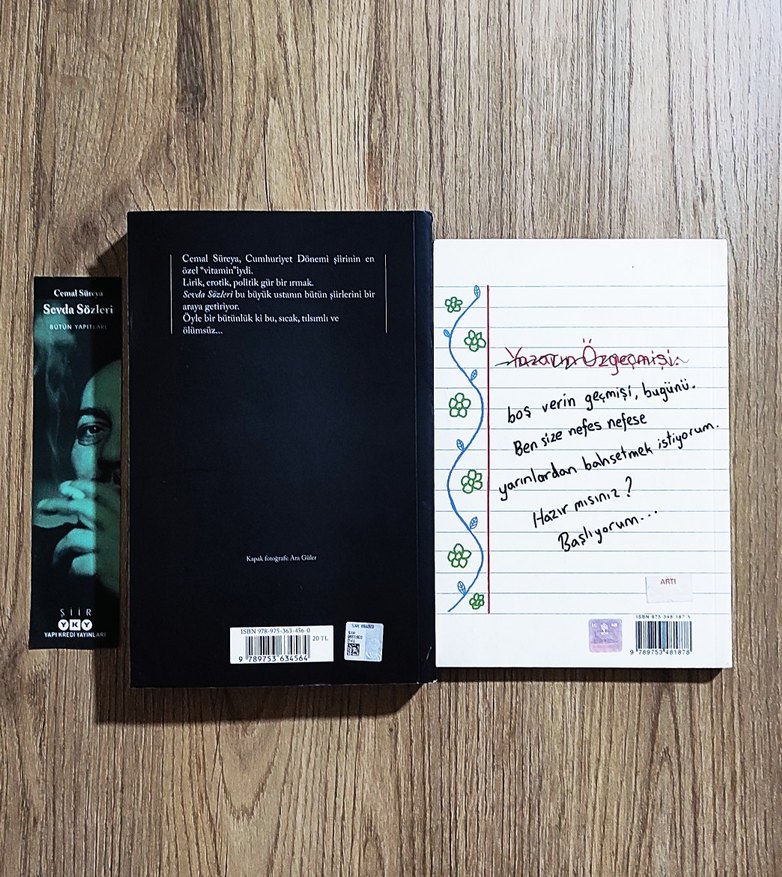 Cemal Süreya
Sevda Sözleri
BÜTÜN YAPITLARI
ŞİİR
YKY
YAPI KREDİ YAYINLARI
Cemal Süreya, Cumhuriyet Dönemi şiirinin en
özel "vitamin"iydi.
Lirik, erotik, politik gür bir ırmak.
Sevda Sözleri bu büyük ustanın bütün şiirlerini bir
araya getiriyor.
Öyle bir bütünlük ki bu, sıcak, tılsımlı ve
ölümsüz...
Kapak fotoğrafı: Ara Güler
ISBN 978-975-363-456-0
20 TL
9 789753 634564
Yazarın Özgeçmişi.
boş verin geçmişi, bugünü.
Ben size nefes nefese
yarınlardan bahsetmek istiyorum.
Hazır mısınız?
Başlıyorum...
ARTI
ISBN 975-348-187-5
9 789753 481878